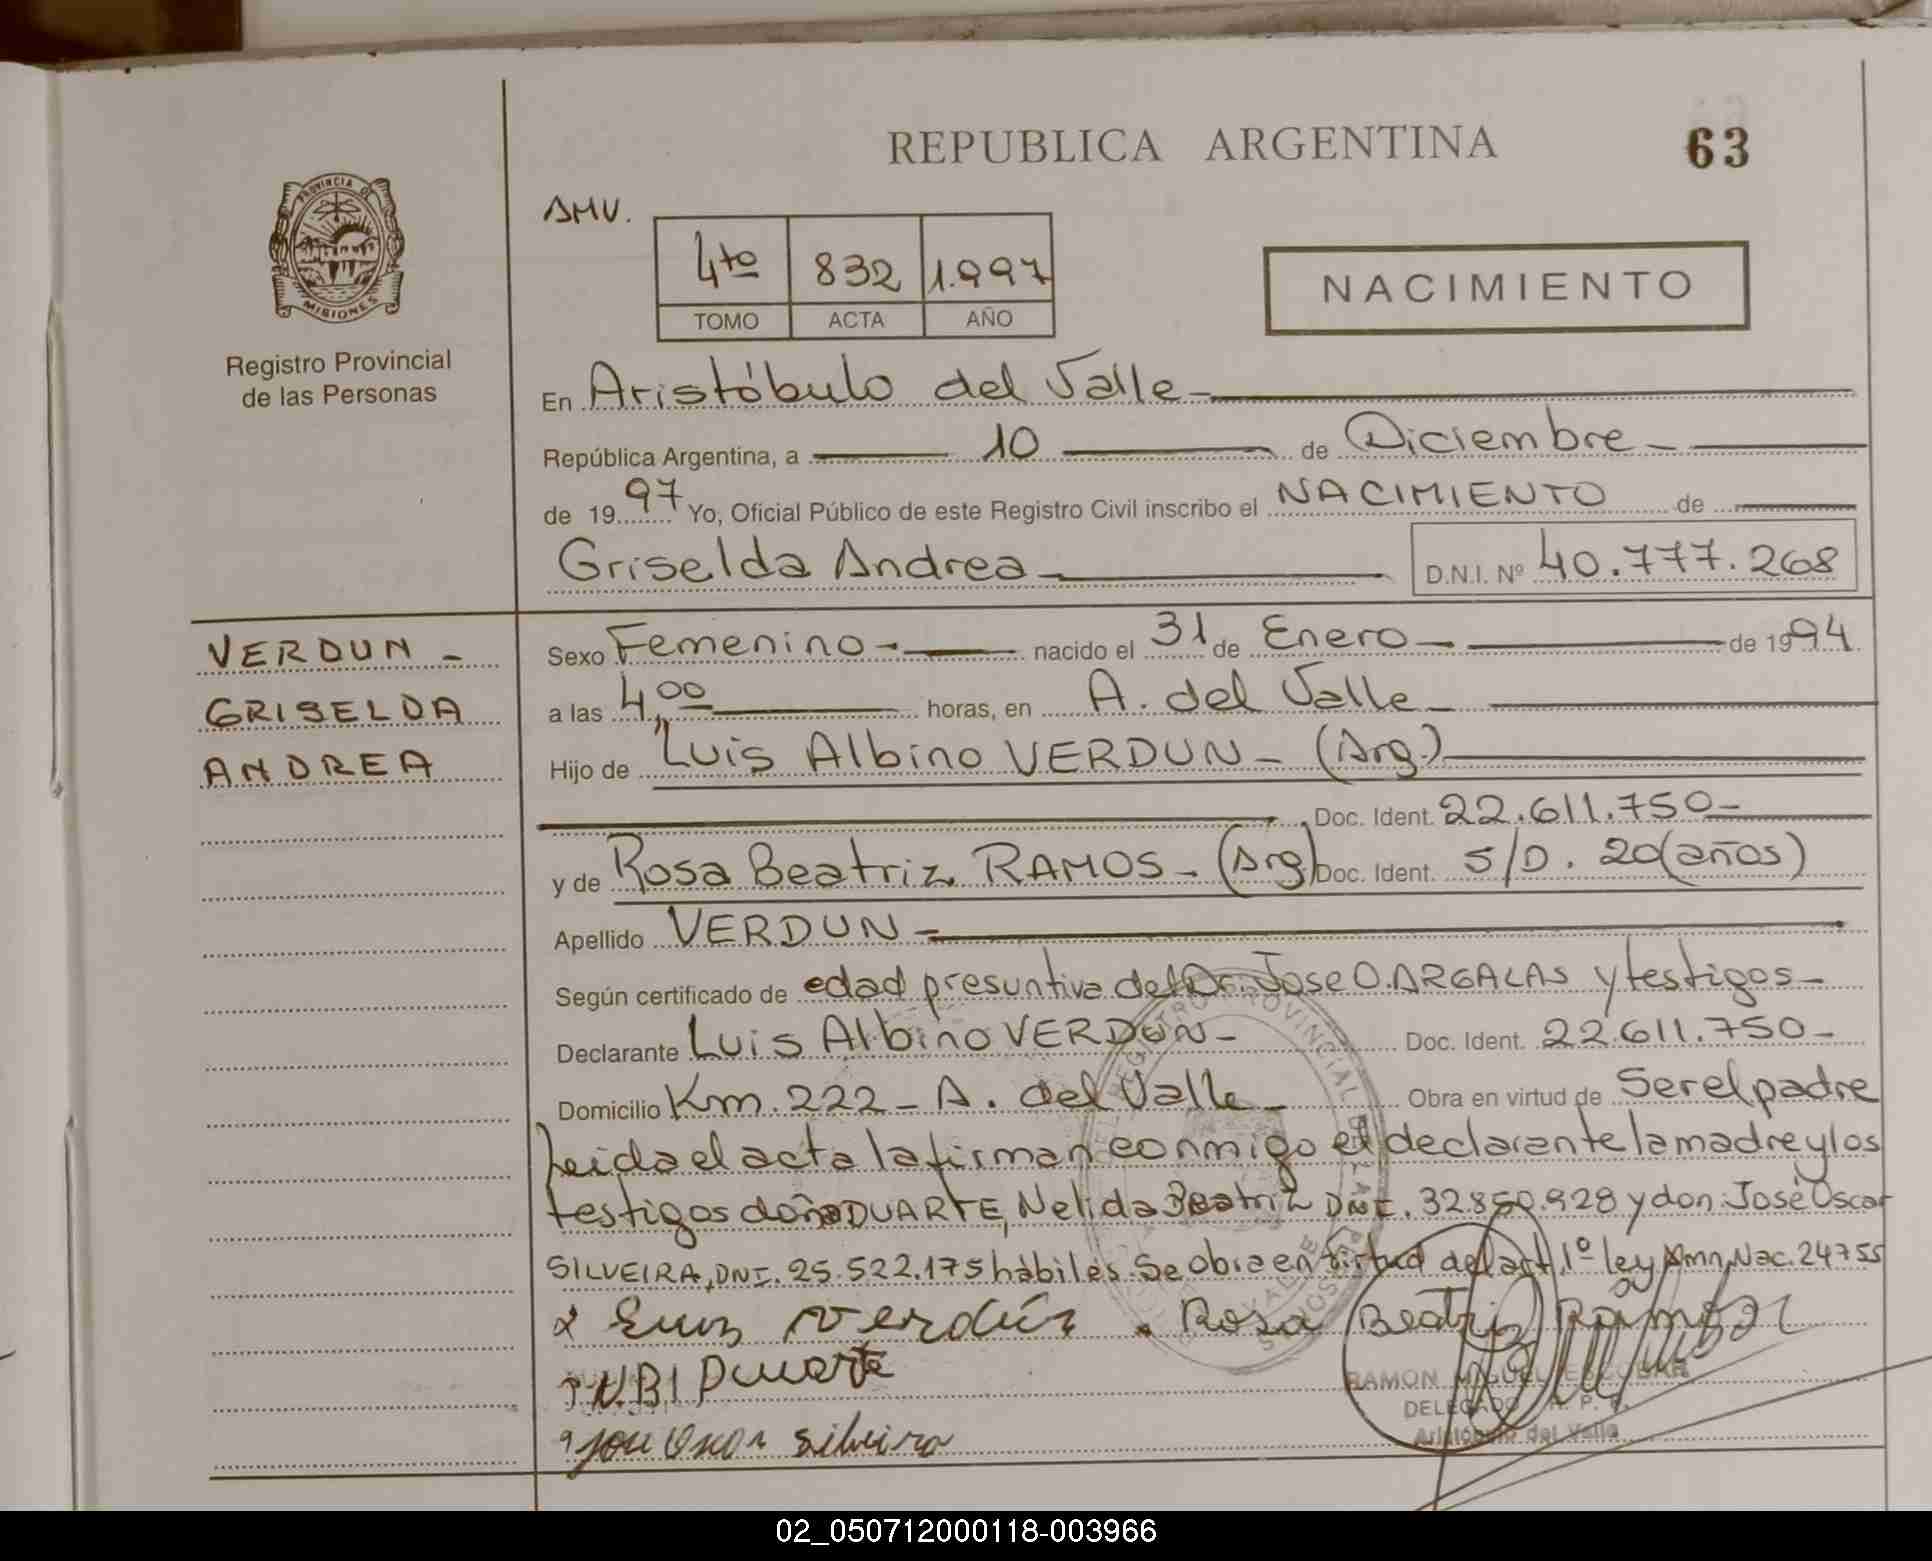 REPUBLICA ARGENTINA
63
PROVINCIA DE
MISIONES
Registro Provincial
de las Personas
AMV.
4to 832 1.997
TOMO ACTA AÑO
NACIMIENTO
En Aristóbulo del Valle
República Argentina, a 10 de Diciembre
de 19 97 Yo, Oficial Público de este Registro Civil inscribo el NACIMIENTO de
Griselda Andrea
D.N.I. Nº 40.777.268
VERDUN
GRISELDA
ANDREA
Sexo Femenino nacido el 31 de Enero de 1994
a las 4,00 horas, en A. del Valle
Hijo de Luis Albino VERDUN - (Arg.)
Doc. Ident. 22.611.750
y de Rosa Beatriz RAMOS - (Arg) Doc. Ident. S/D. 20(años)
Apellido VERDUN
Según certificado de edad presuntiva del Dr. Jose O. ARGALAS y testigos
Declarante Luis Albino VERDUN - Doc. Ident. 22.611.750 -
Domicilio Km. 222 - A. del Valle - Obra en virtud de Ser el padre
Leida el acta la firman conmigo el declarante la madre y los
testigos doña DUARTE, Nelida Beatriz DNI. 32.850.928 y don José Oscar
SILVEIRA, DNI. 25.522.175 hábiles. Se obra en virtud del art. 1º ley Amn. Nac. 24755
Luis Verdún Rosa Beatriz Ramos
N.B Duarte
RAMON MIGUEL ESCOBAR
DELEGADO R. P. P.
Aristóbulo del Valle
José Oscar Silveira
02_050712000118-003966